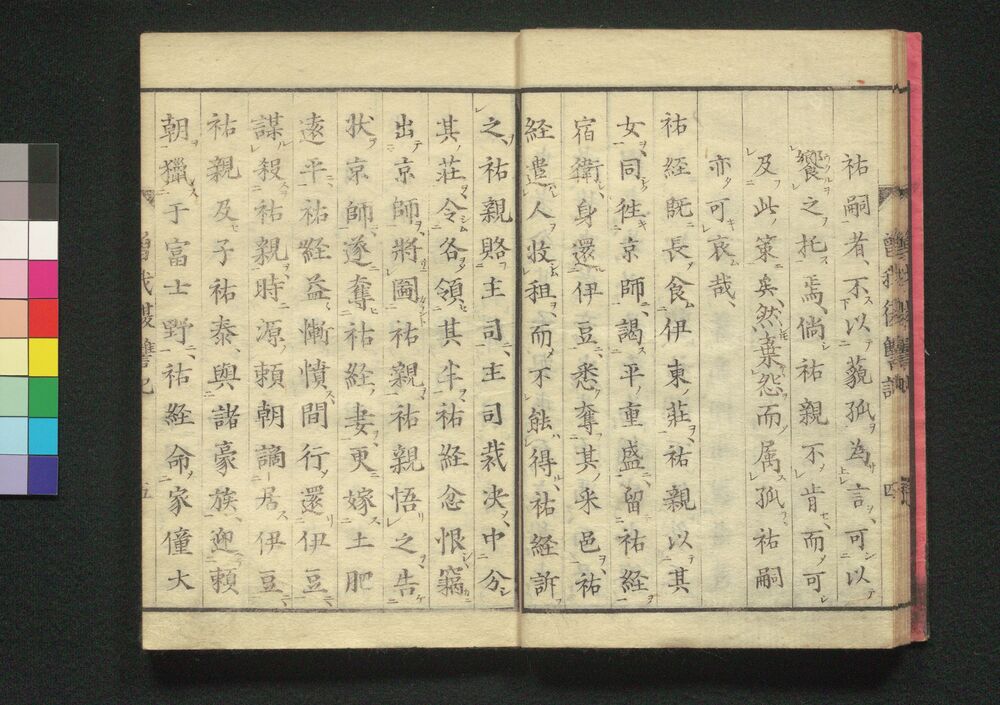 祐嗣者、不以藐孤為言、可以
饗之托焉、倘祐親不肯而可
及此策矣、然棄怨而属孤祐嗣
亦可哀哉、
祐経既長食伊東莊、祐親以其
女、同徃京師、謁平重盛、留祐経
宿衛、身還伊豆悉奪其采邑、祐
経遣人收租、而不能得、祐経訴
之、祐親賂主司、主司裁决中分
其莊、令各領其半、祐経忿恨竊
出京師、將圖祐親、祐親悟之告
状京師、遂奪祐経妻、更嫁土肥
遠平、祐経益慚憤、間行還伊豆、
謀殺祐親、時源頼朝謫居伊豆、
祐親及子祐泰、與諸豪族、迎頼
朝獵于富士野、祐経命家僮大
曽我復讐記
五
四